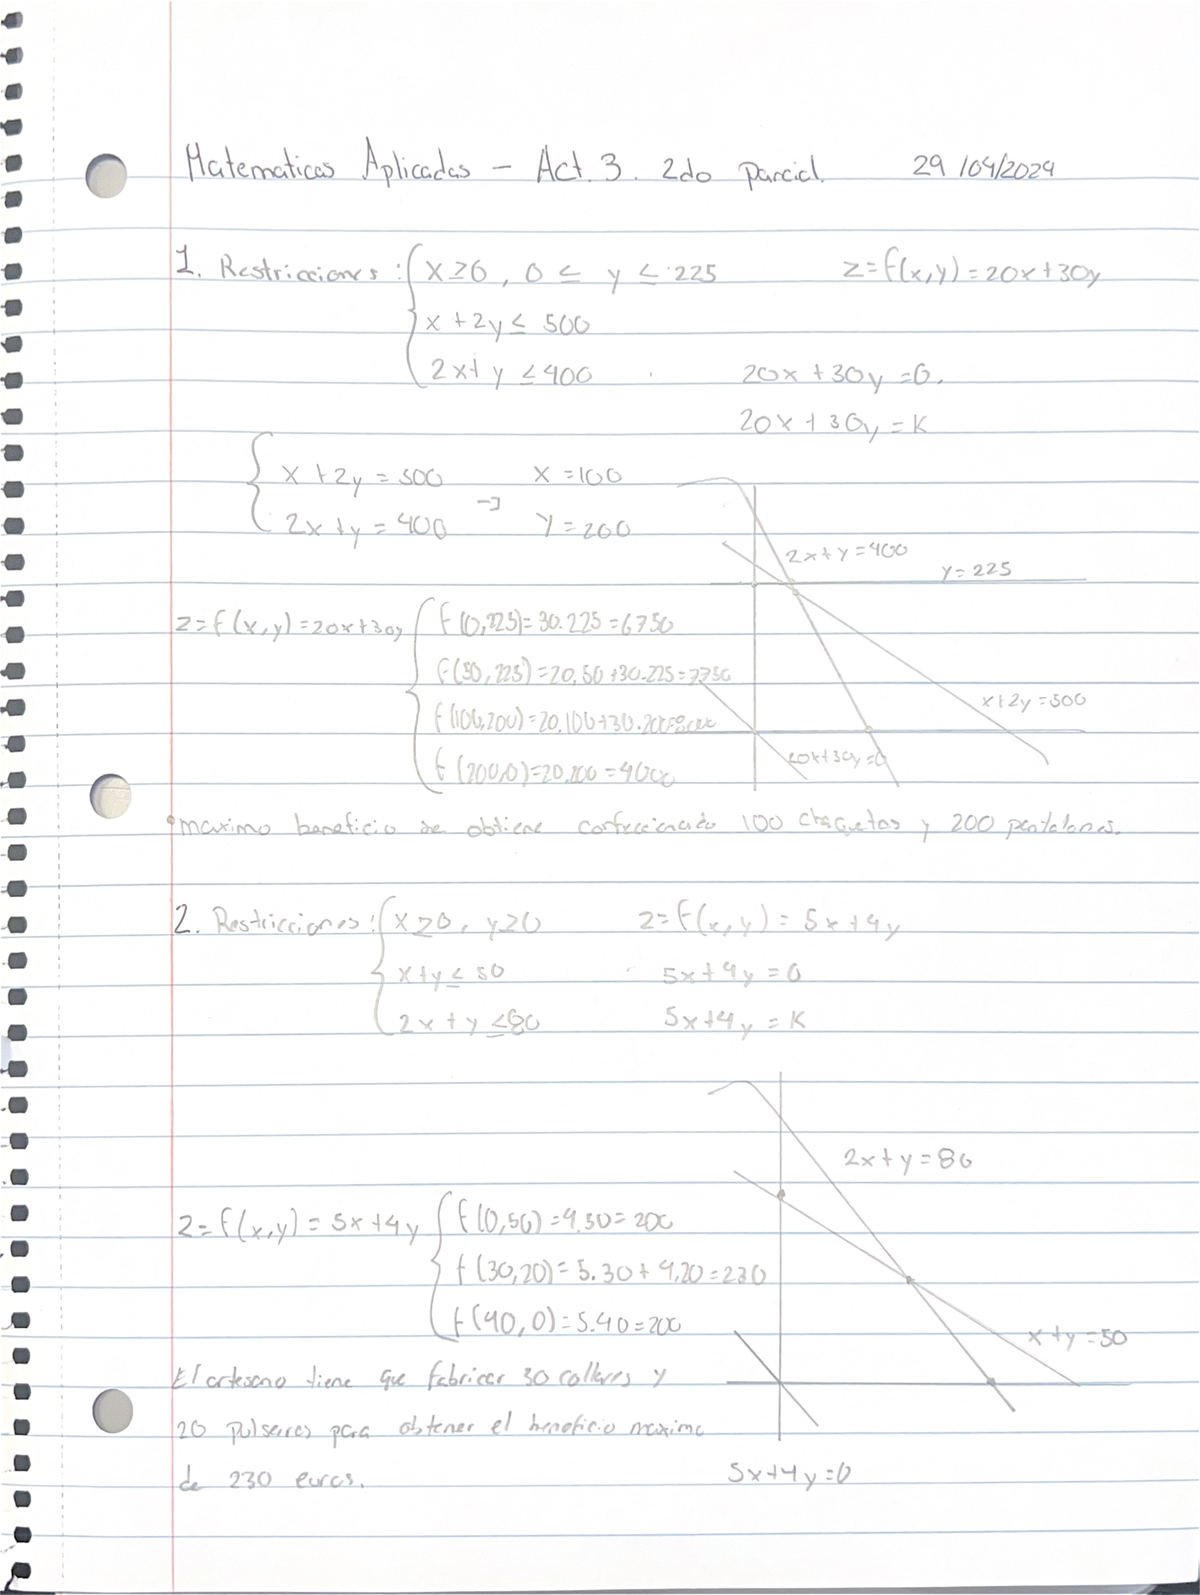 Matematicas Aplicadas - Act. 3. 2do Parcial. 29/04/2024
1. Restricciones: x≥0, 0 ≤ y ≤ 225 z=f(x,y)=20x+30y
x+2y≤ 500
2x+y ≤400 20x+30y=0.
20x+30y=K
x+2y=500 → x=100
2x+y=400 y=200
2x+y=400
y=225
z=f(x,y)=20x+30y f(0,225)=30.225=6750
f(50,225)=20.50+30.225=7750
f(100,200)=20.100+30.200=8000
f(200,0)=20.200=4000
x+2y=500
20x+30y=0
maximo beneficio se obtiene confeccionado 100 chaquetas y 200 pantalones.
2. Restricciones: x≥0, y≥0 z=f(x,y)=5x+4y
x+y≤50 5x+4y=0
2x+y≤80 5x+4y=K
2x+y=80
z=f(x,y)=5x+4y f(0,50)=4.50=200
f(30,20)=5.30+4.20=230
f(40,0)=5.40=200
x+y=50
El artesano tiene que fabricar 30 collares y
20 pulseras para obtener el beneficio maximo
de 230 euros.
5x+4y=0